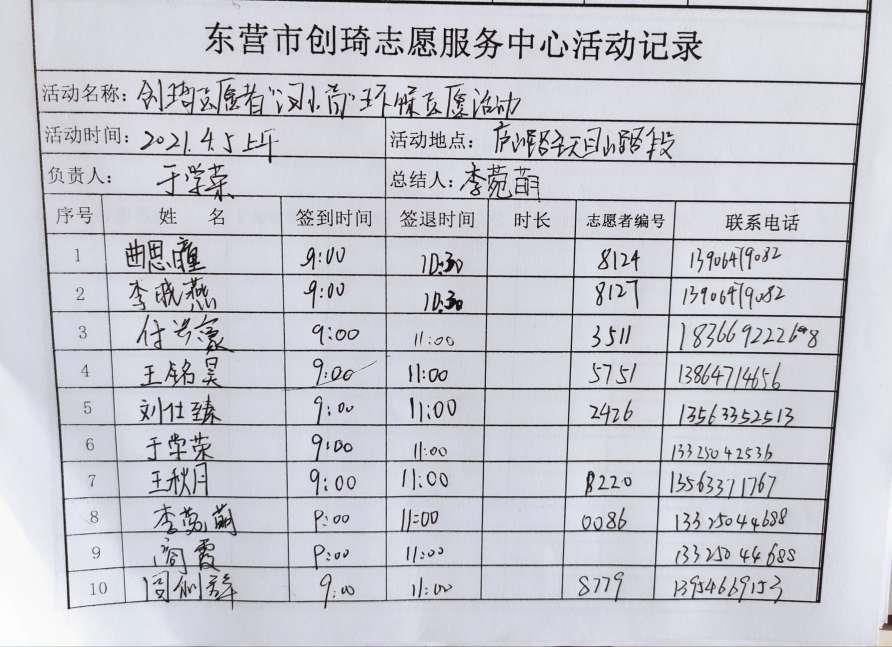 东营市创琦志愿服务中心活动记录
活动名称：创琦志愿者"河小青"环保志愿活动
活动时间：2021.4.5上午 活动地点：庐山路至天目山路段
负责人：于学荣 总结人：李菀萌
序号 姓名 签到时间 签退时间 时长 志愿者编号 联系电话
1 曲思瞳 9:00 10:30 8124 13906479082
2 李晓燕 9:00 10:30 8127 13906479082
3 付 9:00 11:00 3511
4 王铭昊 9:00 11:00 5751 13864714656
5 刘仕臻 9:00 11:00 2426 13563352513
6 于学荣 9:00 11:00 13325042536
7 王秋月 9:00 11:00 8220 13563371767
8 李菀萌 9:00 11:00 0086 13325044688
9 阎霞 9:00 11:00 13325044688
10 9:00 11:00 8779 13954669153